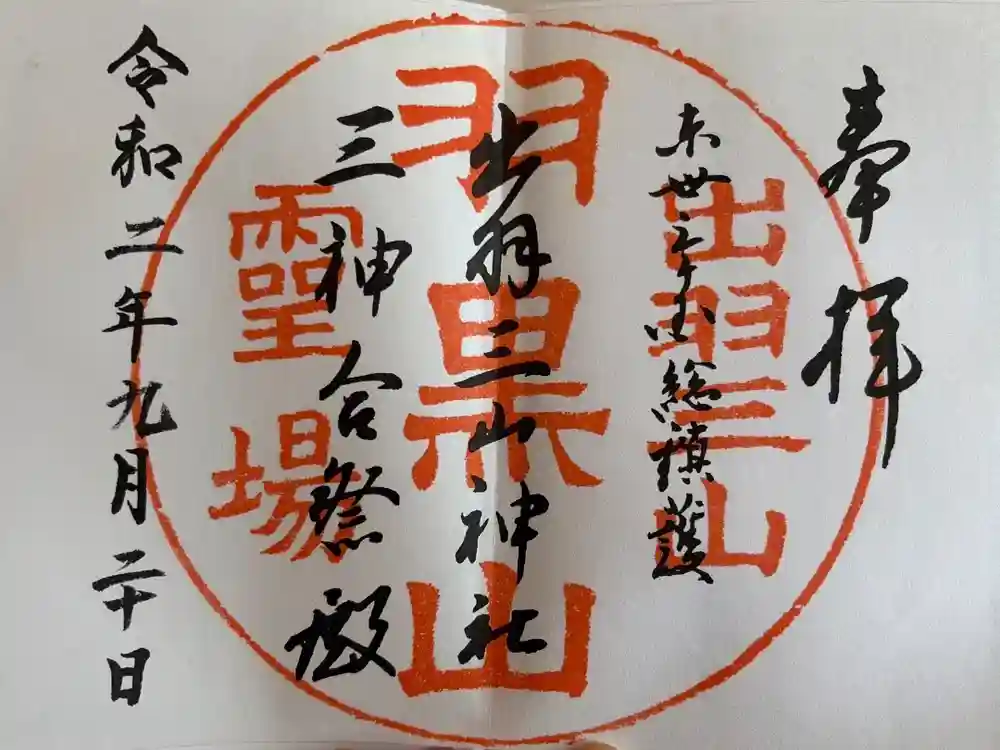 奉拝
東丗三ヶ国総鎮護
出羽三山神社
三神合祭殿
令和二年九月二十日
出羽三山
羽黒山
靈場